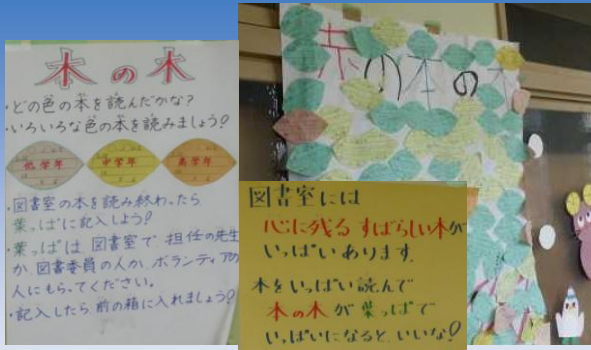 本の木
・どの色の本を読んだかな?
・いろいろな色の本を読みましょう!
低学年 中学年 高学年
・図書室の本を読み終わったら
葉っぱに記入しよう!
・葉っぱは 図書室で、担任の先生
か、図書委員の人か、ボランティアの
人にもらってください。
・記入したら、前の箱に入れましょう!
の本の木
図書室には
心に残る すばらしい本が
いっぱいあります。
本をいっぱい読んで
本の木が葉っぱで
いっぱいになると、いいな!